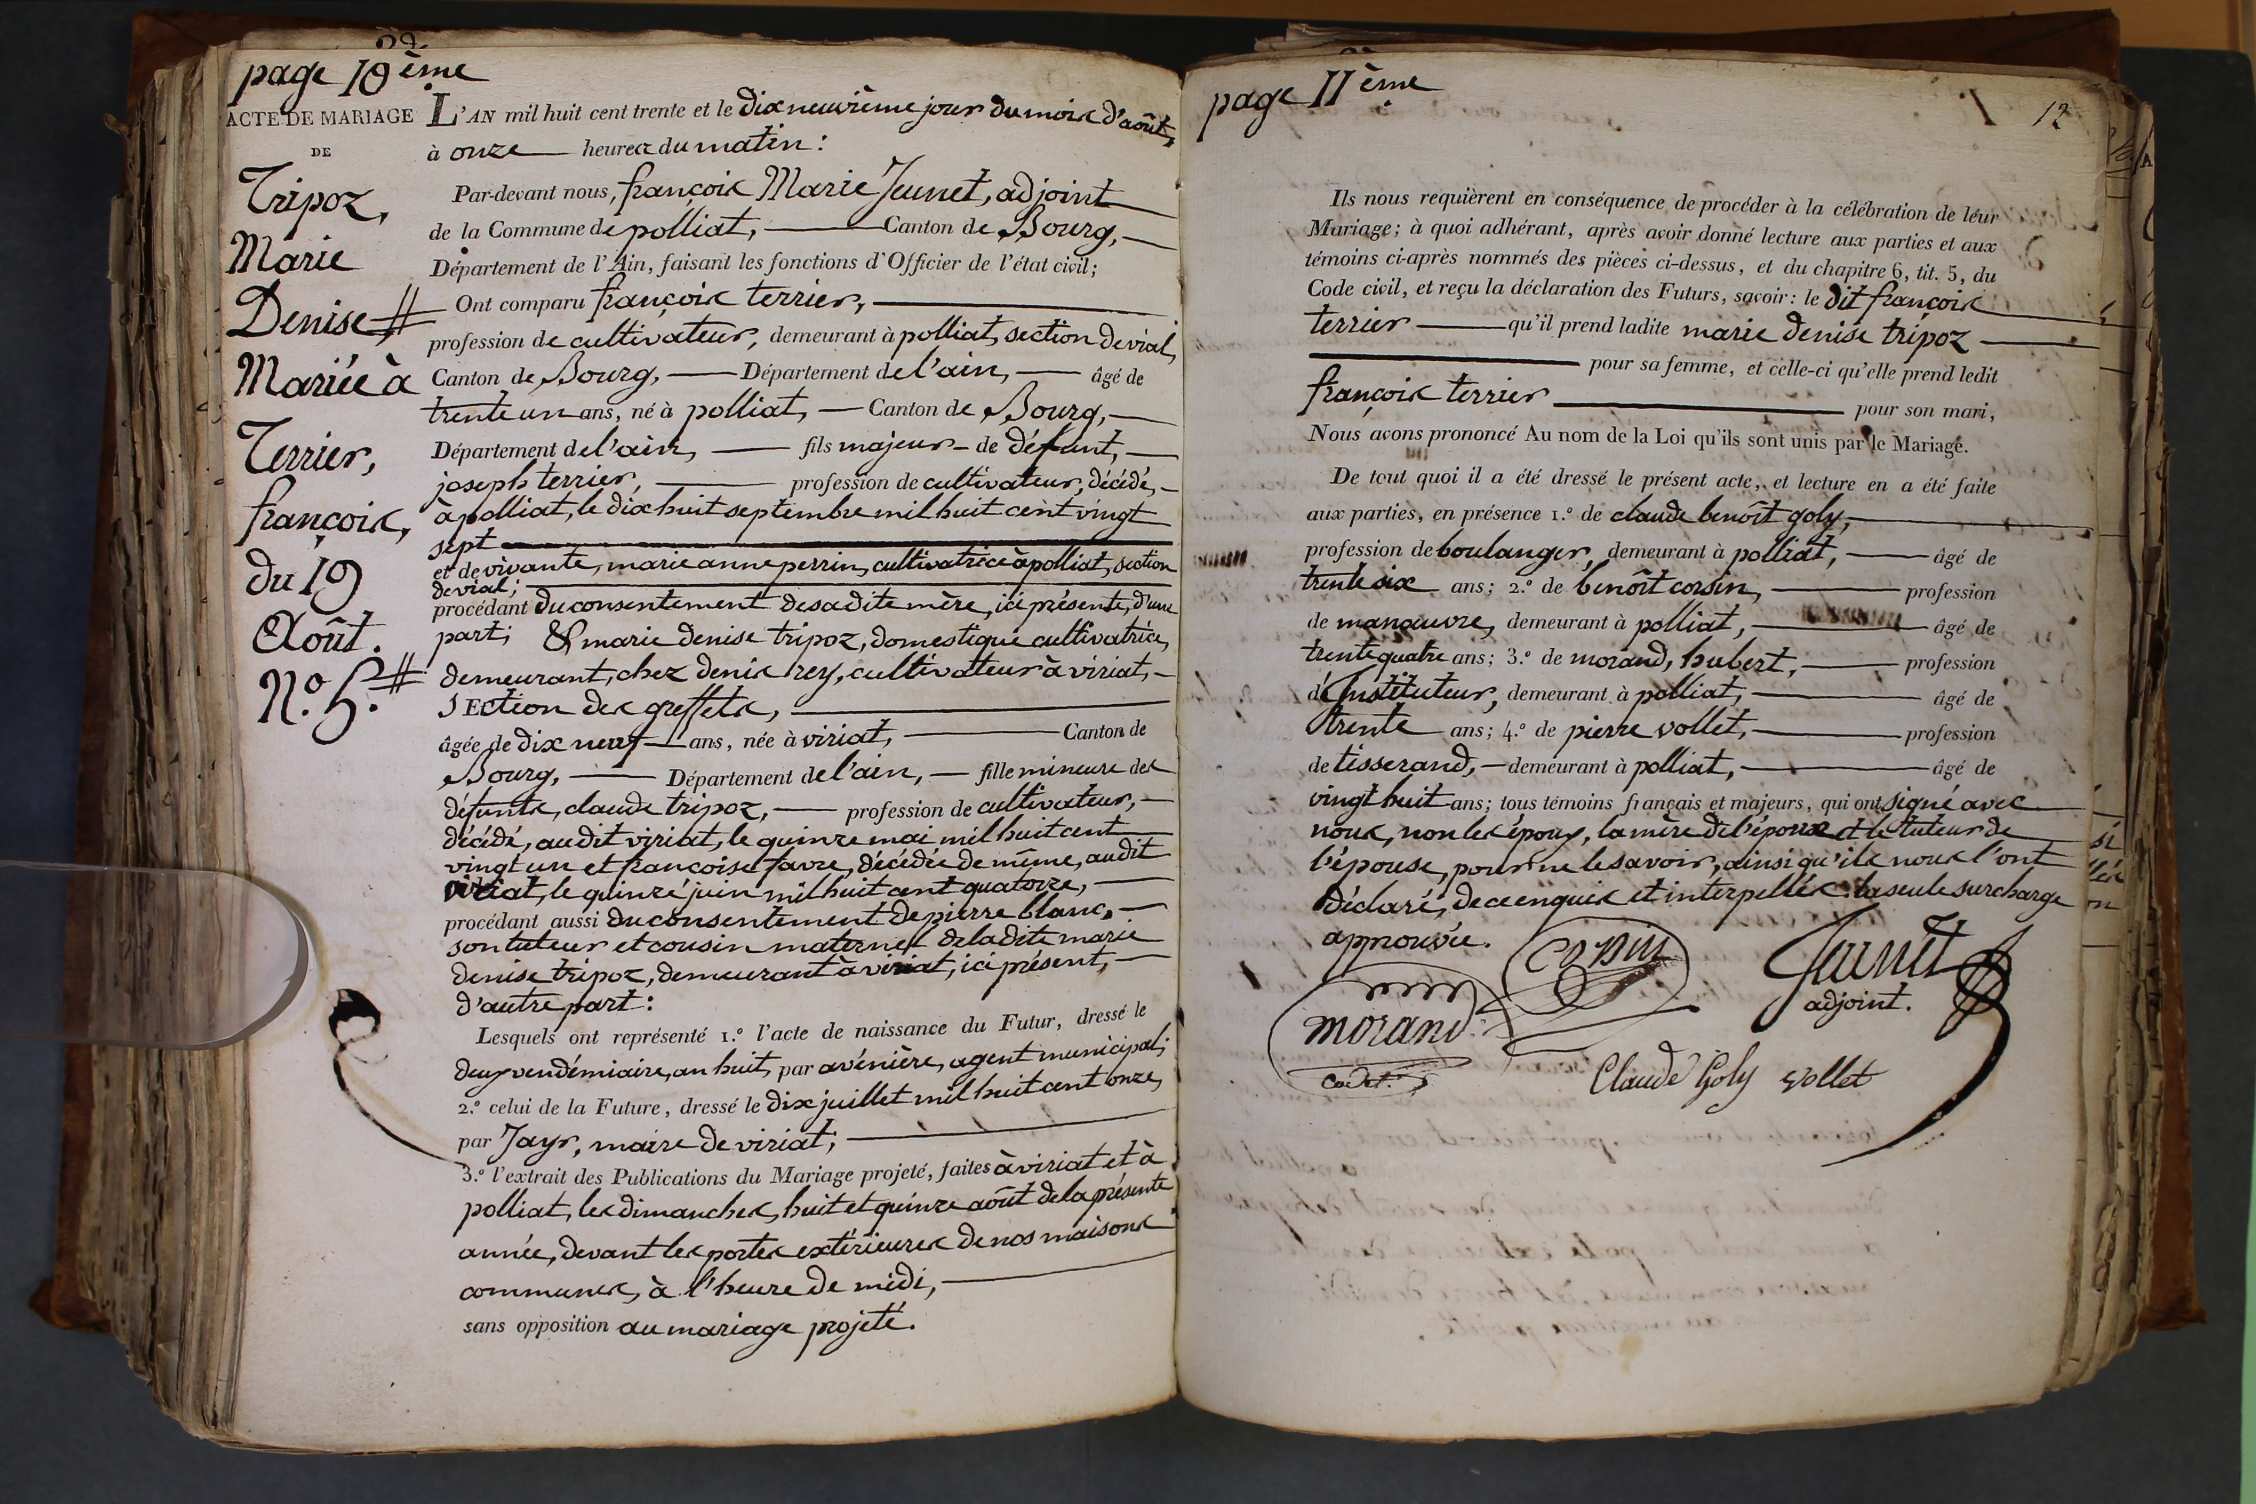 page 10ème
ACTE DE MARIAGE
DE
Tripoz,
Marie
Denise #
Mariée à
Terrier,
françois,
du 19
Août.
N.º 5. #
L'AN mil huit cent trente et le dix neuvième jour du mois d'août,
à onze heures du matin :
Par-devant nous, françois Marie Jeunet, adjoint
de la Commune de polliat, Canton de Bourg,
Département de l'Ain, faisant les fonctions d'Officier de l'état civil ;
Ont comparu françois terrier,
profession de cultivateur, demeurant à polliat, section de vial,
Canton de Bourg, Département de l'ain, âgé de
trente un ans, né à polliat, Canton de Bourg,
Département de l'ain, fils majeur de défunt,
joseph terrier, profession de cultivateur, décédé,
à polliat, le dix huit septembre mil huit cent vingt
sept
et de vivante, marie anne perrin, cultivatrice à polliat, section
de vial ;
procédant du consentement de sa dite mère, ici présente, d'une
part ; & marie denise tripoz, domestique cultivatrice,
demeurant, chez denis rey, cultivateur à viriat,
SEction des greffets,
âgée de dix neuf ans, née à viriat, Canton de
Bourg, Département de l'ain, fille mineure des
défunts, claude tripoz, profession de cultivateur,
décédé, audit viriat, le quinze mai mil huit cent
vingt un et françoise favre, décédée de même, audit
viriat, le quinze juin mil huit cent quatorze,
procédant aussi du consentement de pierre blanc,
son tuteur et cousin maternel de la dite marie
denise tripoz, demeurant à viriat, ici présent,
d'autre part :
Lesquels ont représenté 1.º l'acte de naissance du Futur, dressé le
deux vendémiaire, an huit, par avénière, agent municipal ;
2.º celui de la Future, dressé le dix juillet mil huit cent onze,
par Jayr, maire de viriat ;
3.º l'extrait des Publications du Mariage projeté, faites à viriat et à
polliat, les dimanches, huit et quinze août de la présente
année, devant les portes extérieures de nos maisons
communes, à l'heure de midi,
sans opposition au mariage projeté.
page 11ème
12
Ils nous requièrent en conséquence de procéder à la célébration de leur
Mariage ; à quoi adhérant, après avoir donné lecture aux parties et aux
témoins ci-après nommés des pièces ci-dessus, et du chapitre 6, tit. 5, du
Code civil, et reçu la déclaration des Futurs, savoir : le dit françois
terrier qu'il prend ladite marie denise tripoz
pour sa femme, et celle-ci qu'elle prend ledit
françois terrier pour son mari,
Nous avons prononcé Au nom de la Loi qu'ils sont unis par le Mariage.
De tout quoi il a été dressé le présent acte, et lecture en a été faite
aux parties, en présence 1.º de claude benoît goly,
profession de boulanger, demeurant à polliat, âgé de
trente six ans ; 2.º de benoît corsin, profession
de manœuvre, demeurant à polliat, âgé de
trente quatre ans ; 3.º de morand, hubert, profession
d'Instituteur, demeurant à polliat, âgé de
trente ans ; 4.º de pierre vollet, profession
de tisserand, demeurant à polliat, âgé de
vingt huit ans ; tous témoins français et majeurs, qui ont signé avec
nous, non les époux, la mère de l'époux et le tuteur de
l'épouse, pour ne le savoir, ainsi qu'ils nous l'ont
déclaré, de ce enquis et interpellés. la seule surcharge
approuvée.
Jeunet
adjoint.
morand
cadet
Claude Goly vollet